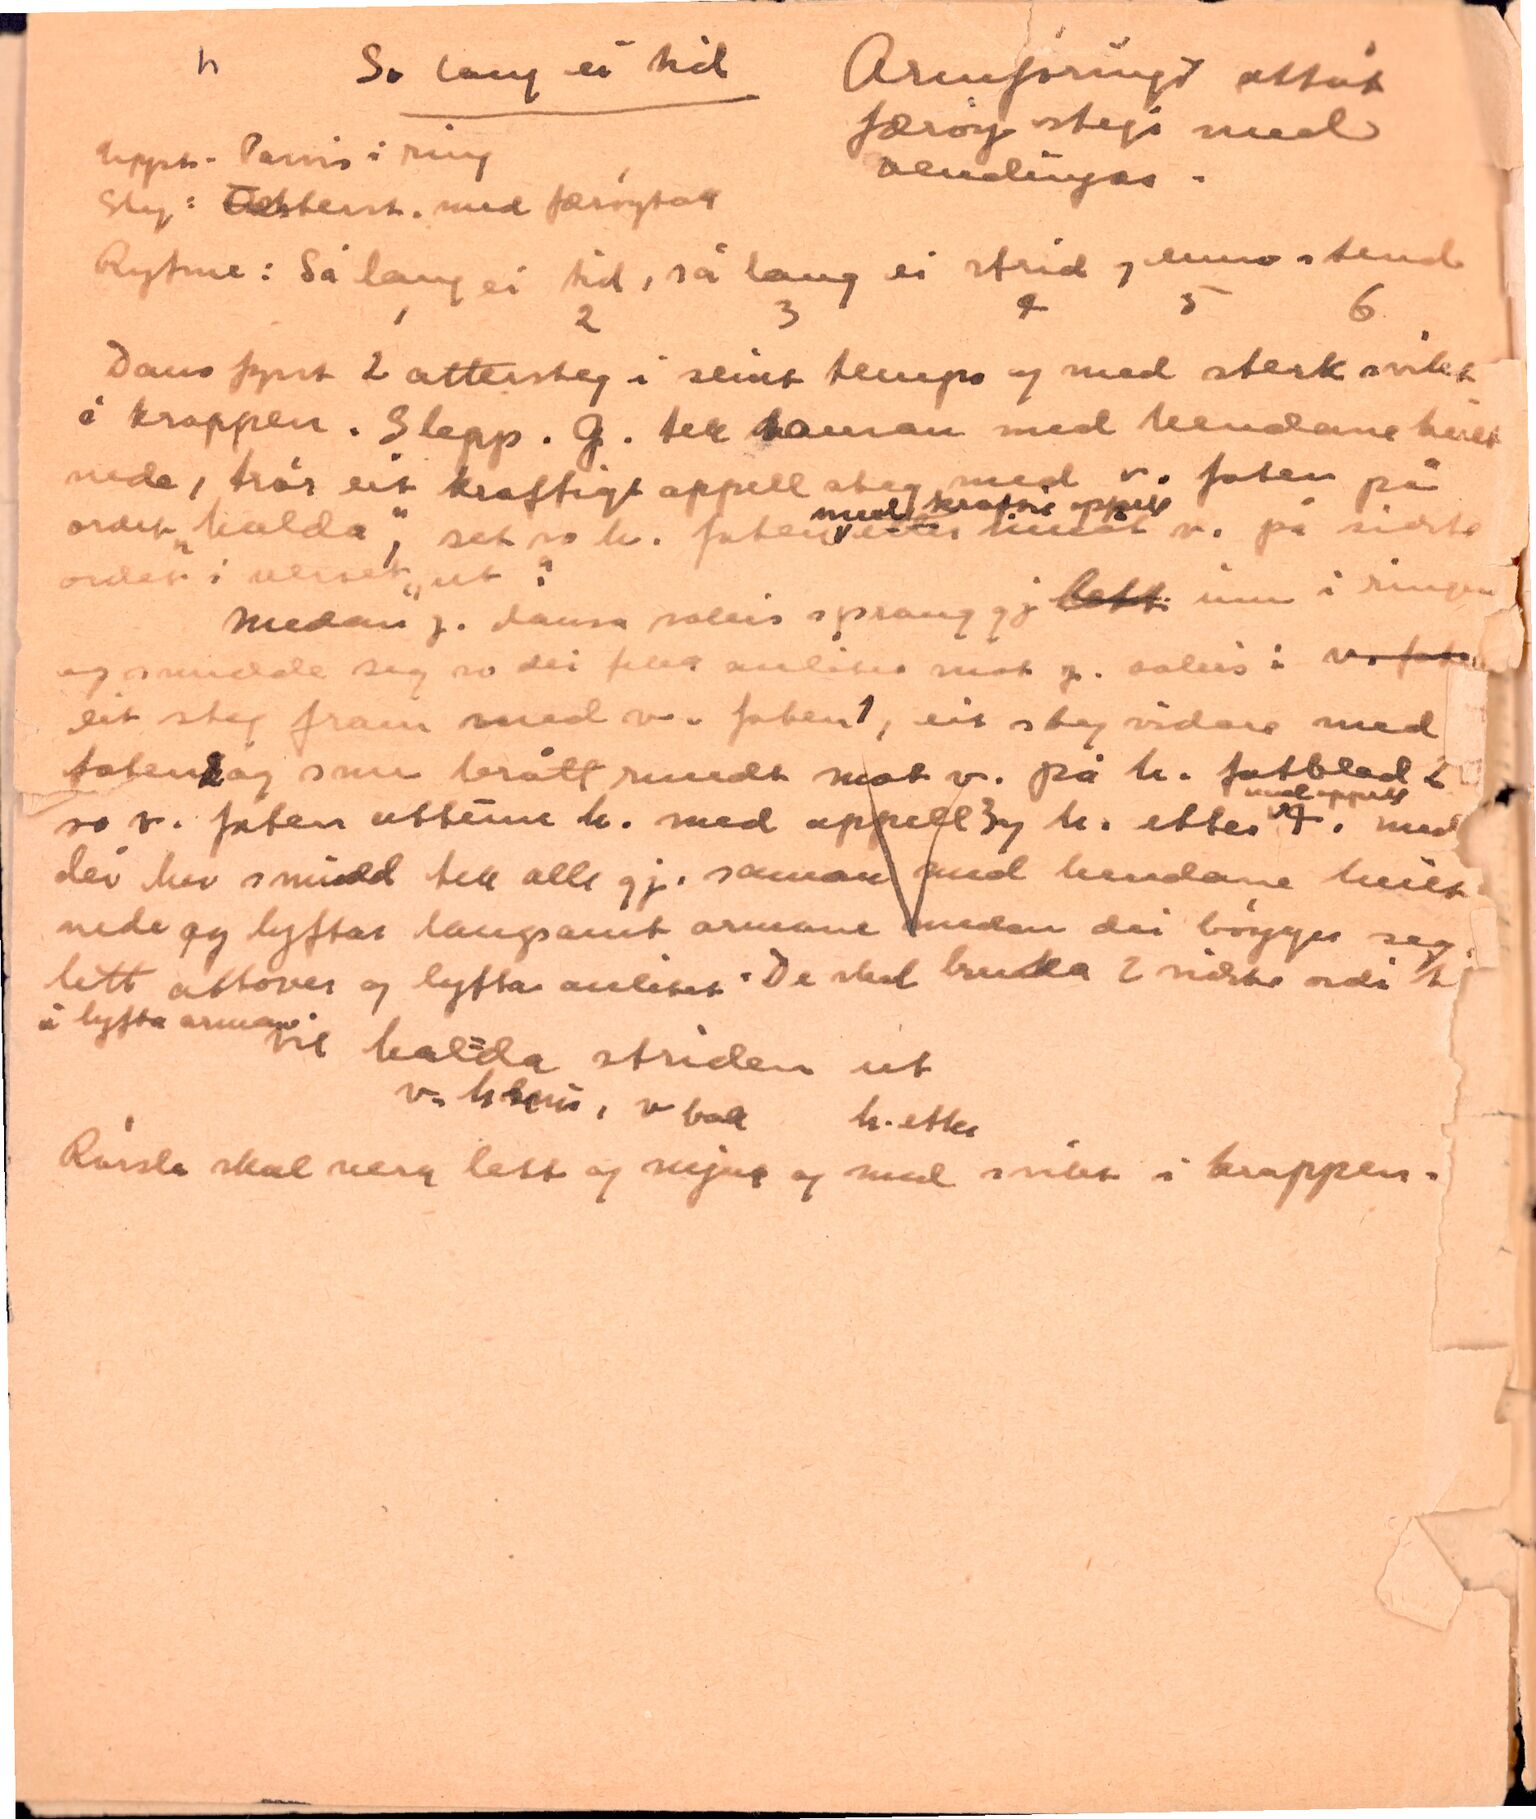 h So lang ei tid
Armføringi attåt
færøy stegi med
vendingar.
Uppst. Parvis i ring
Steg: Attterst. med færøytak
Rytme: Så lang ei tid, så lang ei strid, enno stend
1 2 3 4 5 6
Dans fyrst 2 attersteg i seint tempo og med sterk svikt
i kroppen. Slepp. G. tek saman med hendane heilt
nede, trør eit kraftigt appell steg med v. foten på
med kraftig appell
ordet "halda", set so h. foten etter inåt v. på sidste
ordet i verset "ut".
Medan g. dansa soleis sprang gj lett inn i ringen
og snudde seg so dei fekk anlitet mot g. soleis: v. foten
eit steg fram med v. foten 1, eit steg vidare med
foten 2 og snu brått rundt mot v. på h. fotblad 2
med appell
so v. foten attum h. med appell 3 og h. etter 4. med
dei hev snudd tek alle gj. saman med hendane heilt
nede og lyftar langsamt armane medan dei bøygjer seg
lett attover og lyfta anlitet. De skal bruka 2 sidste ordi t
å lyfta armane
vil halda striden ut
v. h snu, v bak h. etter
Rørsla skal vera lett og mjuk og med svikt i kroppen.